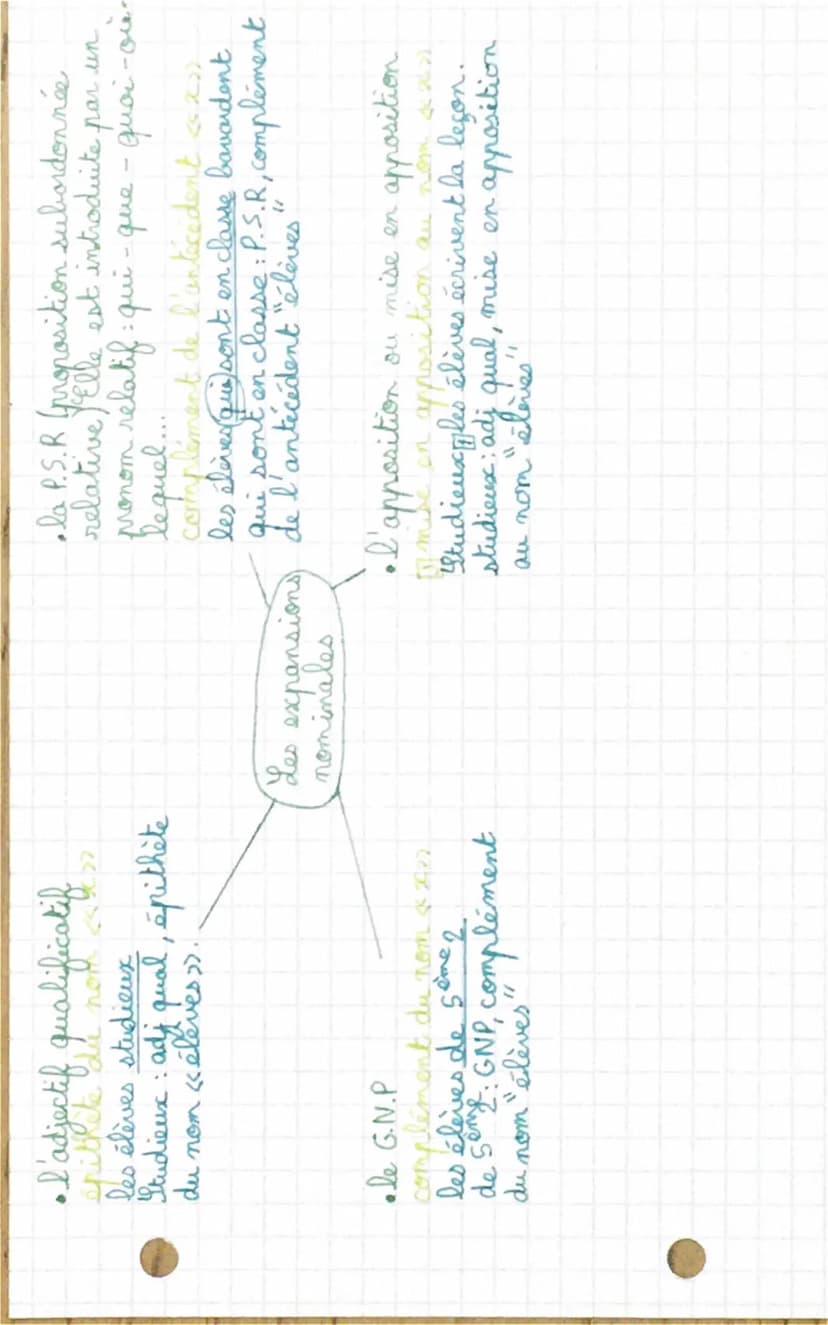 • l'adjectif qualificatif
épithète du nom « x »
les élèves studieux
studieux : adj qual, épithète
du nom « élèves ».
• la P.S.R (proposition subordonnée
relative) Elle est introduite par un
pronom relatif : qui - que - quoi - où -
lequel...
complément de l'antécédent « x »
les élèves qui sont en classe bavardent
qui sont en classe : P.S.R, complément
de l'antécédent "élèves"
Les expansions
nominales
• le G.N.P
complément du nom « x »
les élèves de 5ème 2
de 5ème 2 : GNP, complément
du nom "élèves"
• l'apposition ou mise en apposition
[,] mise en apposition au nom « x »
Studieux, les élèves écrivent la leçon.
studieux : adj qual, mise en apposition
au nom "élèves"